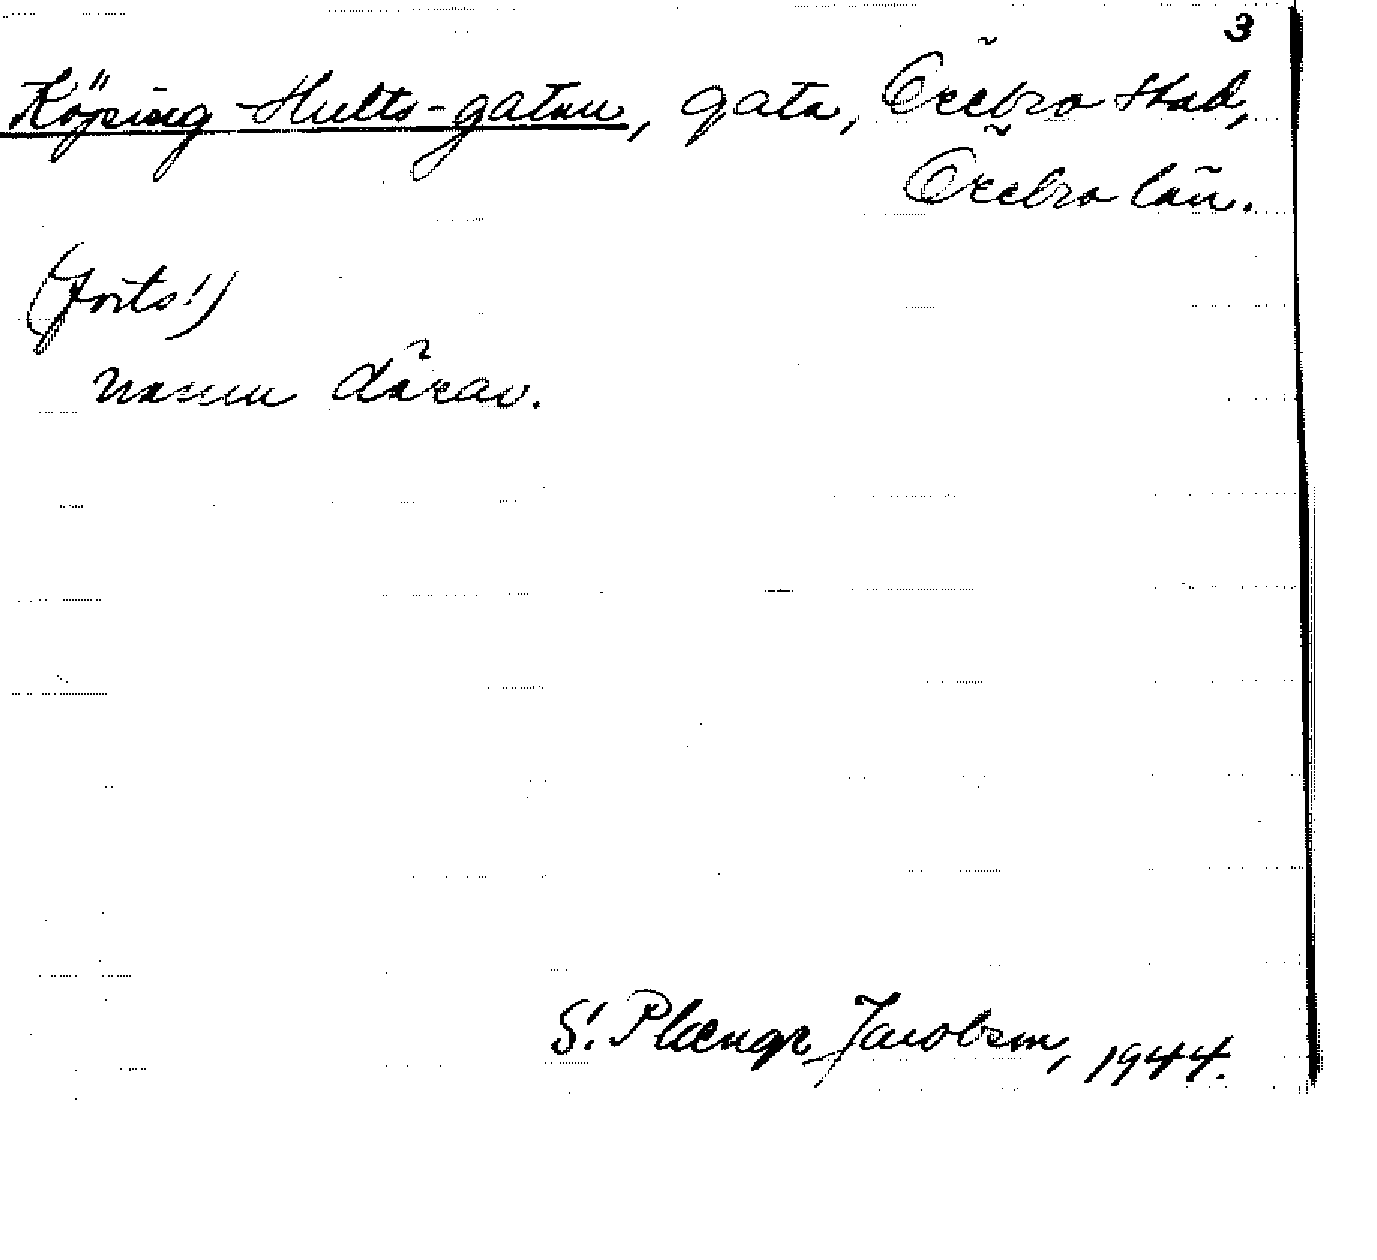 3
Köping-Hults-gatan, gata, Örebro stad,
Örebro län.
(forts!)
namn därav.
S. Plænge Jacobson, 1944.